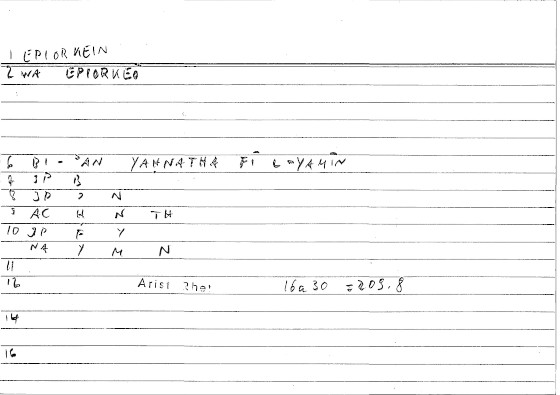 1 EPIORKEIN
2 WA EPIORKEO
6 BI - ʾAN YAḤNATHA FĪ L-YAMĪN
8 JP B
8 JP ʾ N
9 AC H N TH
10 JP F Y
NA Y M N
11
12 Arist Rhet 16a30 = 205.8
14
16